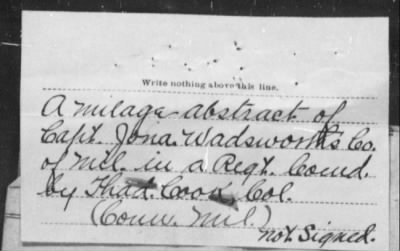 Write nothing above this line.
A milage abstract of
Capt. Jona. Wadsworth's Co.
of Mil. in a Regt. Comd.
by Thad. Cook, Col.
(Conn. Mil.)
not Signed.